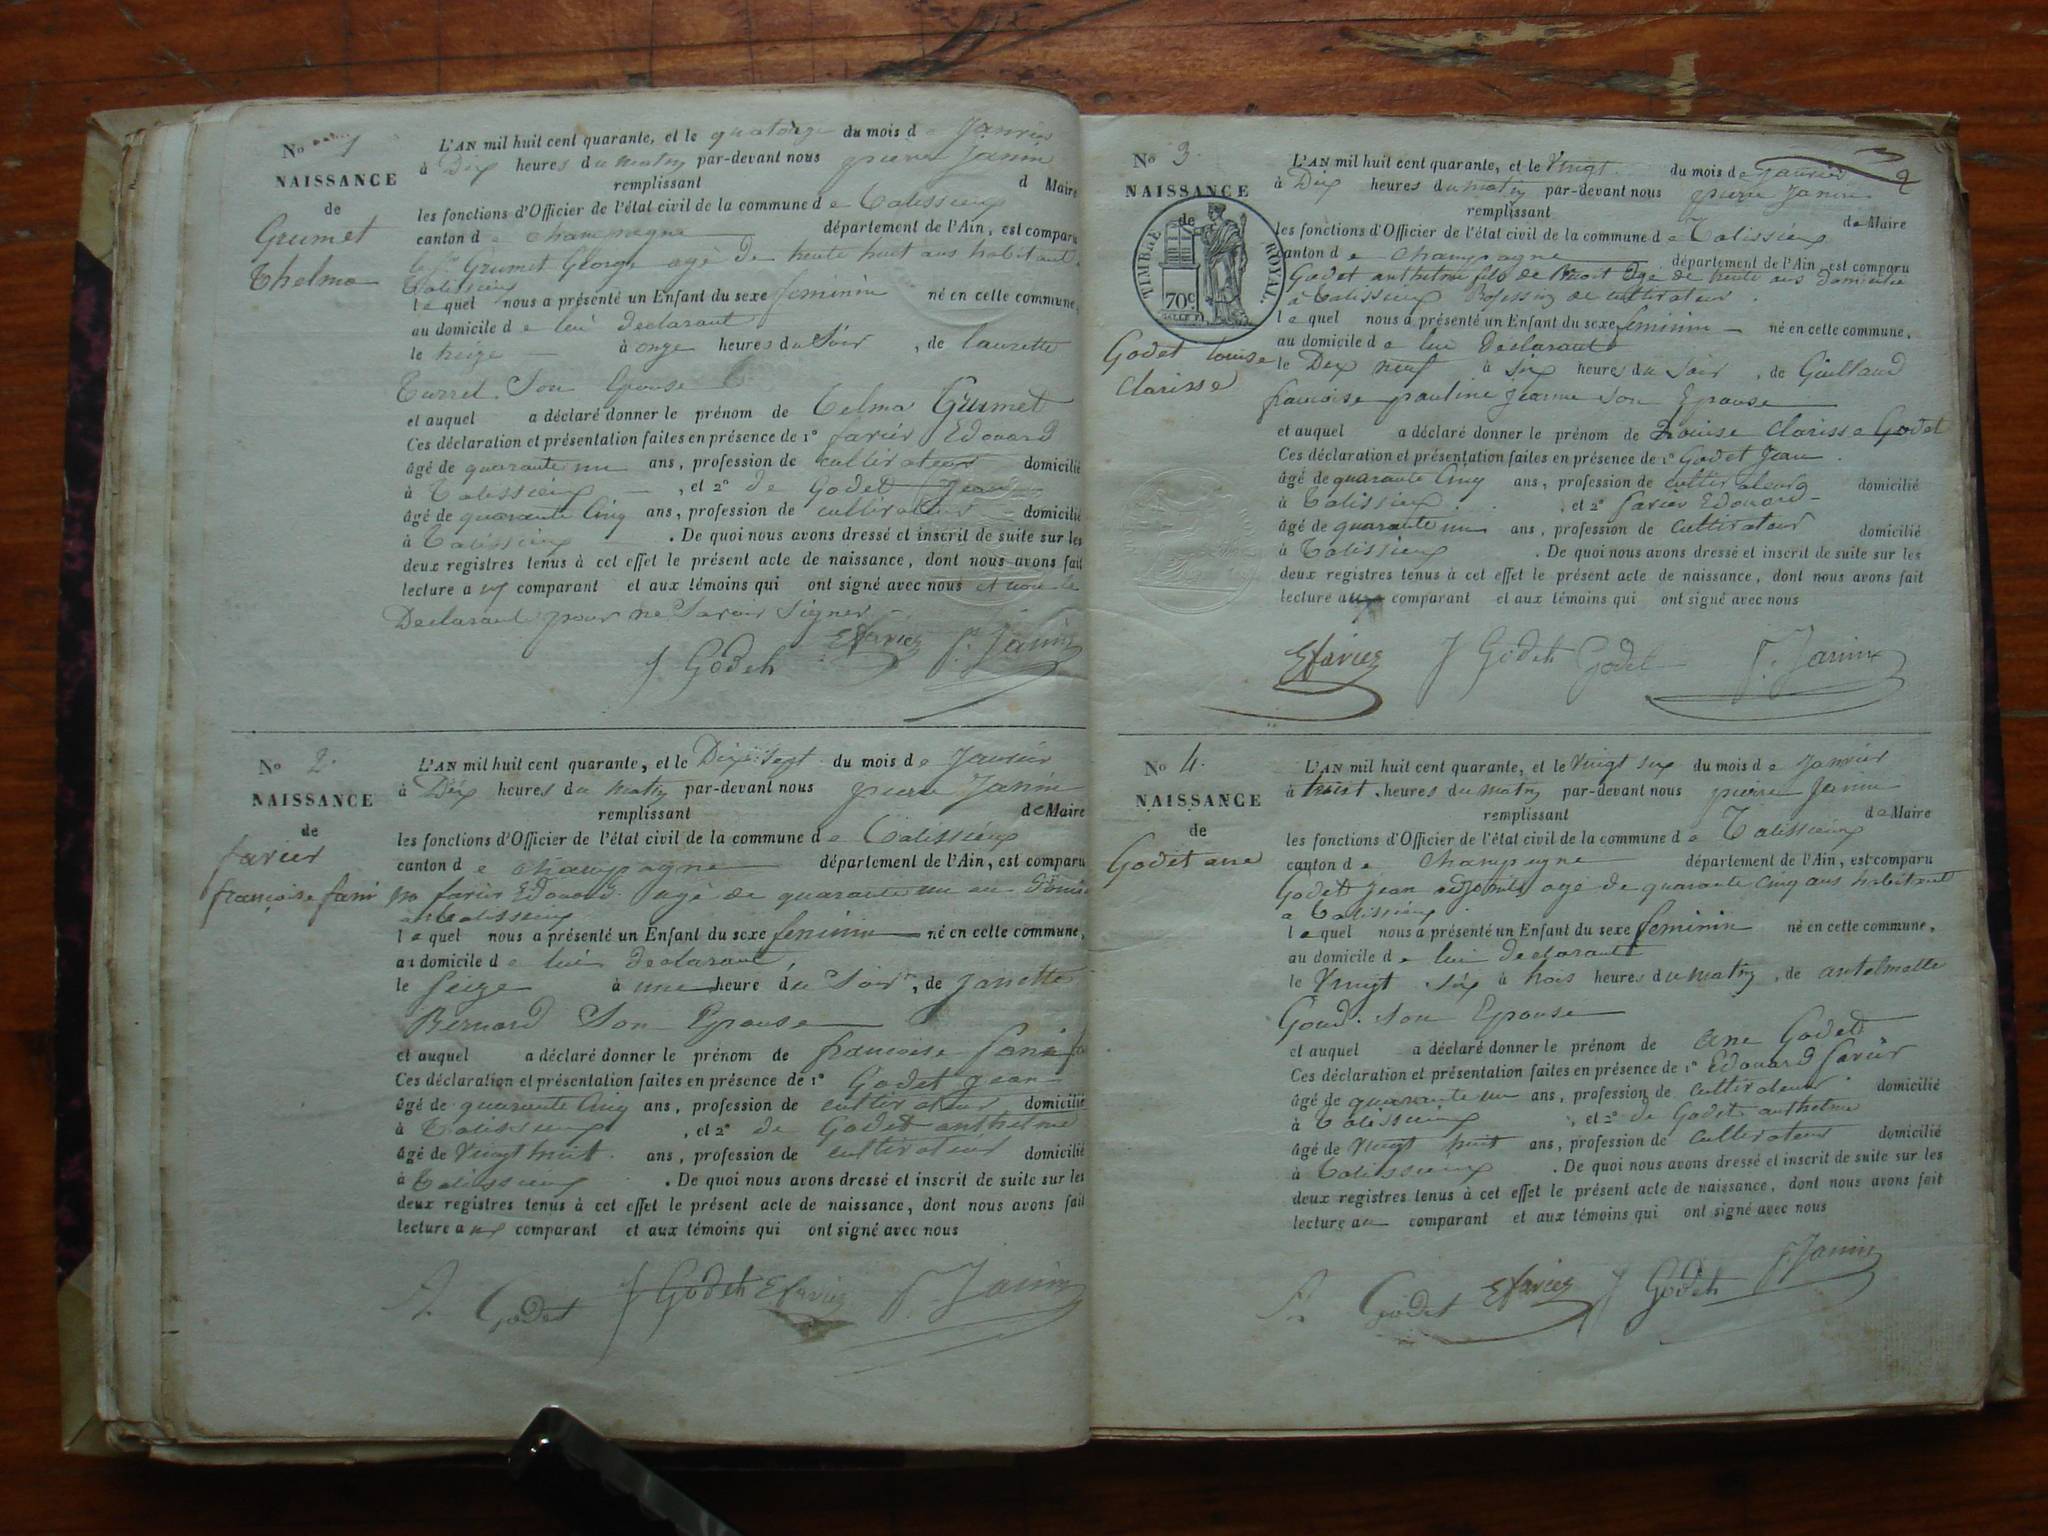 No 1
NAISSANCE
de
Grumet
Thelma
L'AN mil huit cent quarante, et le quatorze du mois de Janvier
à Dix heures du matin par-devant nous pierre Janin
remplissant d Maire
les fonctions d'Officier de l'état civil de la commune de Talissieux
canton de champagne département de l'Ain, est comparu
Grumet George agé de trente huit ans habitant
Talissieux
le quel nous a présenté un Enfant du sexe feminin né en cette commune,
au domicile de lui declarant
le treize à onze heures du Soir, de laurette
Turrel Son Epouse
et auquel a déclaré donner le prénom de Telma Grumet
Ces déclaration et présentation faites en présence de 1° favier Edouard
âgé de quarante un ans, profession de cultivateur domicilié
à Talissieux, et 2° de Godet Jean
âgé de quarante Cinq ans, profession de cultivateur domicilié
à Talissieux. De quoi nous avons dressé et inscrit de suite sur les
deux registres tenus à cet effet le présent acte de naissance, dont nous avons fait
lecture aux comparant et aux témoins qui ont signé avec nous et non le
Declarant pour ne Savoir Signer
J Godet Efavier P. Janin
No 2.
NAISSANCE
de
favier
françoise fani
L'AN mil huit cent quarante, et le Dix Sept du mois de Janvier
à Dix heures du matin par-devant nous pierre Janin
remplissant de Maire
les fonctions d'Officier de l'état civil de la commune de Talissieux
canton de champagne département de l'Ain, est comparu
favier Edouard agé de quarante un an
a Talissieux
le quel nous a présenté un Enfant du sexe feminin né en cette commune,
au domicile de lui declarant,
le Seize à une heure du Soir, de Janette
Bernard Son Epouse
et auquel a déclaré donner le prénom de francoise fani
Ces déclaration et présentation faites en présence de 1° Godet Jean
âgé de quarante Cinq ans, profession de cultivateur domicilié
à Talissieux, et 2° de Godet anthelme
âgé de Vingt huit ans, profession de cultivateur domicilié
à Talissieux. De quoi nous avons dressé et inscrit de suite sur les
deux registres tenus à cet effet le présent acte de naissance, dont nous avons fait
lecture aux comparant et aux témoins qui ont signé avec nous
A. Godet J Godet Efavier P. Janin
No 3.
NAISSANCE
de
TIMBRE ROYAL.
70c
Godet louise
Clarisse
L'AN mil huit cent quarante, et le Vingt du mois de Janvier
à Dix heures du matin par-devant nous pierre Janin
remplissant de Maire
les fonctions d'Officier de l'état civil de la commune de Talissieux
canton de champagne département de l'Ain, est comparu
Godet anthelme fils de Benoit age de trente ans domicilié
à Talissieux Profession de cultivateur.
le quel nous a présenté un Enfant du sexe feminin né en cette commune,
au domicile de lui Declarant
le Dix neuf à Six heures du Soir, de Guilland
francoise pauline jeanne Son Epouse
et auquel a déclaré donner le prénom de Louise Clarisse Godet
Ces déclaration et présentation faites en présence de 1° Godet Jean.
âgé de quarante Cinq ans, profession de cultivateur domicilié
à Talissieux, et 2° favier Edouard
âgé de quarante un ans, profession de Cultivateur domicilié
à Talissieux. De quoi nous avons dressé et inscrit de suite sur les
deux registres tenus à cet effet le présent acte de naissance, dont nous avons fait
lecture aux comparant et aux témoins qui ont signé avec nous
Efavier J Godet Godet P. Janin
No 4.
NAISSANCE
de
Godet ane
L'AN mil huit cent quarante, et le Vingt six du mois de Janvier
à heures du matin par-devant nous pierre Janin
remplissant de Maire
les fonctions d'Officier de l'état civil de la commune de Talissieux
canton de Champagne département de l'Ain, est comparu
Godet Jean adjoint agé de quarante Cinq ans habitant
a Talissieux.
le quel nous a présenté un Enfant du sexe feminin né en cette commune,
au domicile de lui declarant
le Vingt Six à trois heures du matin, de antelmette
Goud Son Epouse
et auquel a déclaré donner le prénom de ane Godet
Ces déclaration et présentation faites en présence de 1° Edouard favier
âgé de quarante un ans, profession de cultivateur domicilié
à Talissieux, et 2° de Godet anthelme
âgé de Vingt huit ans, profession de Cultivateur domicilié
à Talissieux. De quoi nous avons dressé et inscrit de suite sur les
deux registres tenus à cet effet le présent acte de naissance, dont nous avons fait
lecture au comparant et aux témoins qui ont signé avec nous
A. Godet Efavier J Godet P. Janin